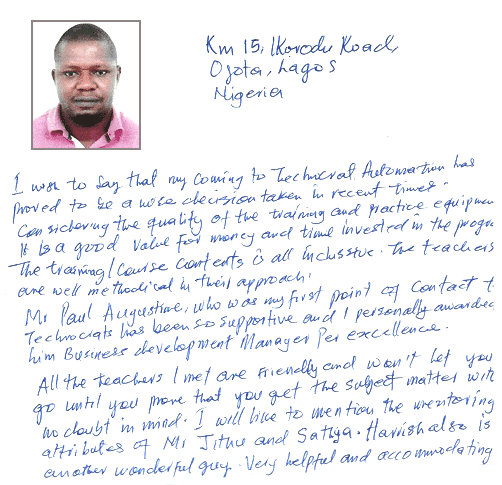 Km 15, Ikorodu Road,
Ojota, Lagos
Nigeria
I wish to say that my coming to Technocrat Automation has
proved to be a wise decision taken in recent times
considering the quality of the training and practice equipmen
It is a good value for money and time invested in the progr
The training/course contents is all inclusive. The teachers
are well methodical in their approach.
Mr Paul Augustine, who was my first point of contact t
Technocrats has been so supportive and I personally awarded
him Business development Manager Per excellence.
All the teachers I met are friendly and won't let you
go until you prove that you get the subject matter with
no doubt in mind. I will like to mention the mentoring
attributes of Mr Jithu and Sathya. Harrish also is
another wonderful guy. Very helpful and accommodating